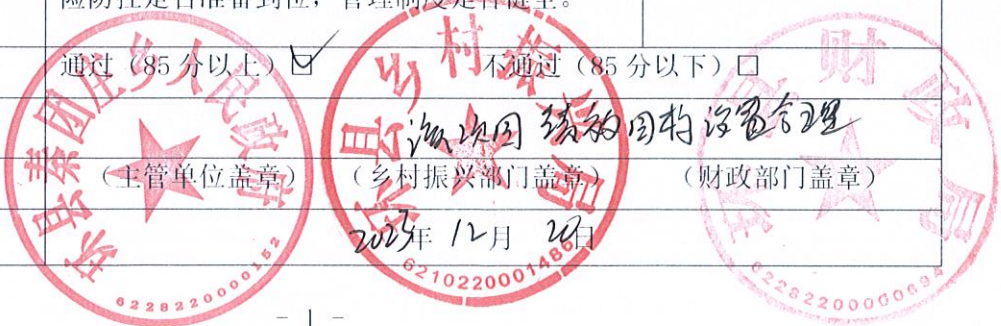 险防控是否准备到位，管理制度是否健全。
通过（85 分以上）☑ 不通过（85 分以下）□
该项目绩效目标设置合理
（主管单位盖章） （乡村振兴部门盖章） （财政部门盖章）
2023年 12月 20日
环县秦团庄乡人民政府
6228220000152
环县乡村振兴局
6210220001486
环县财政局
6228220000694
- 1 -